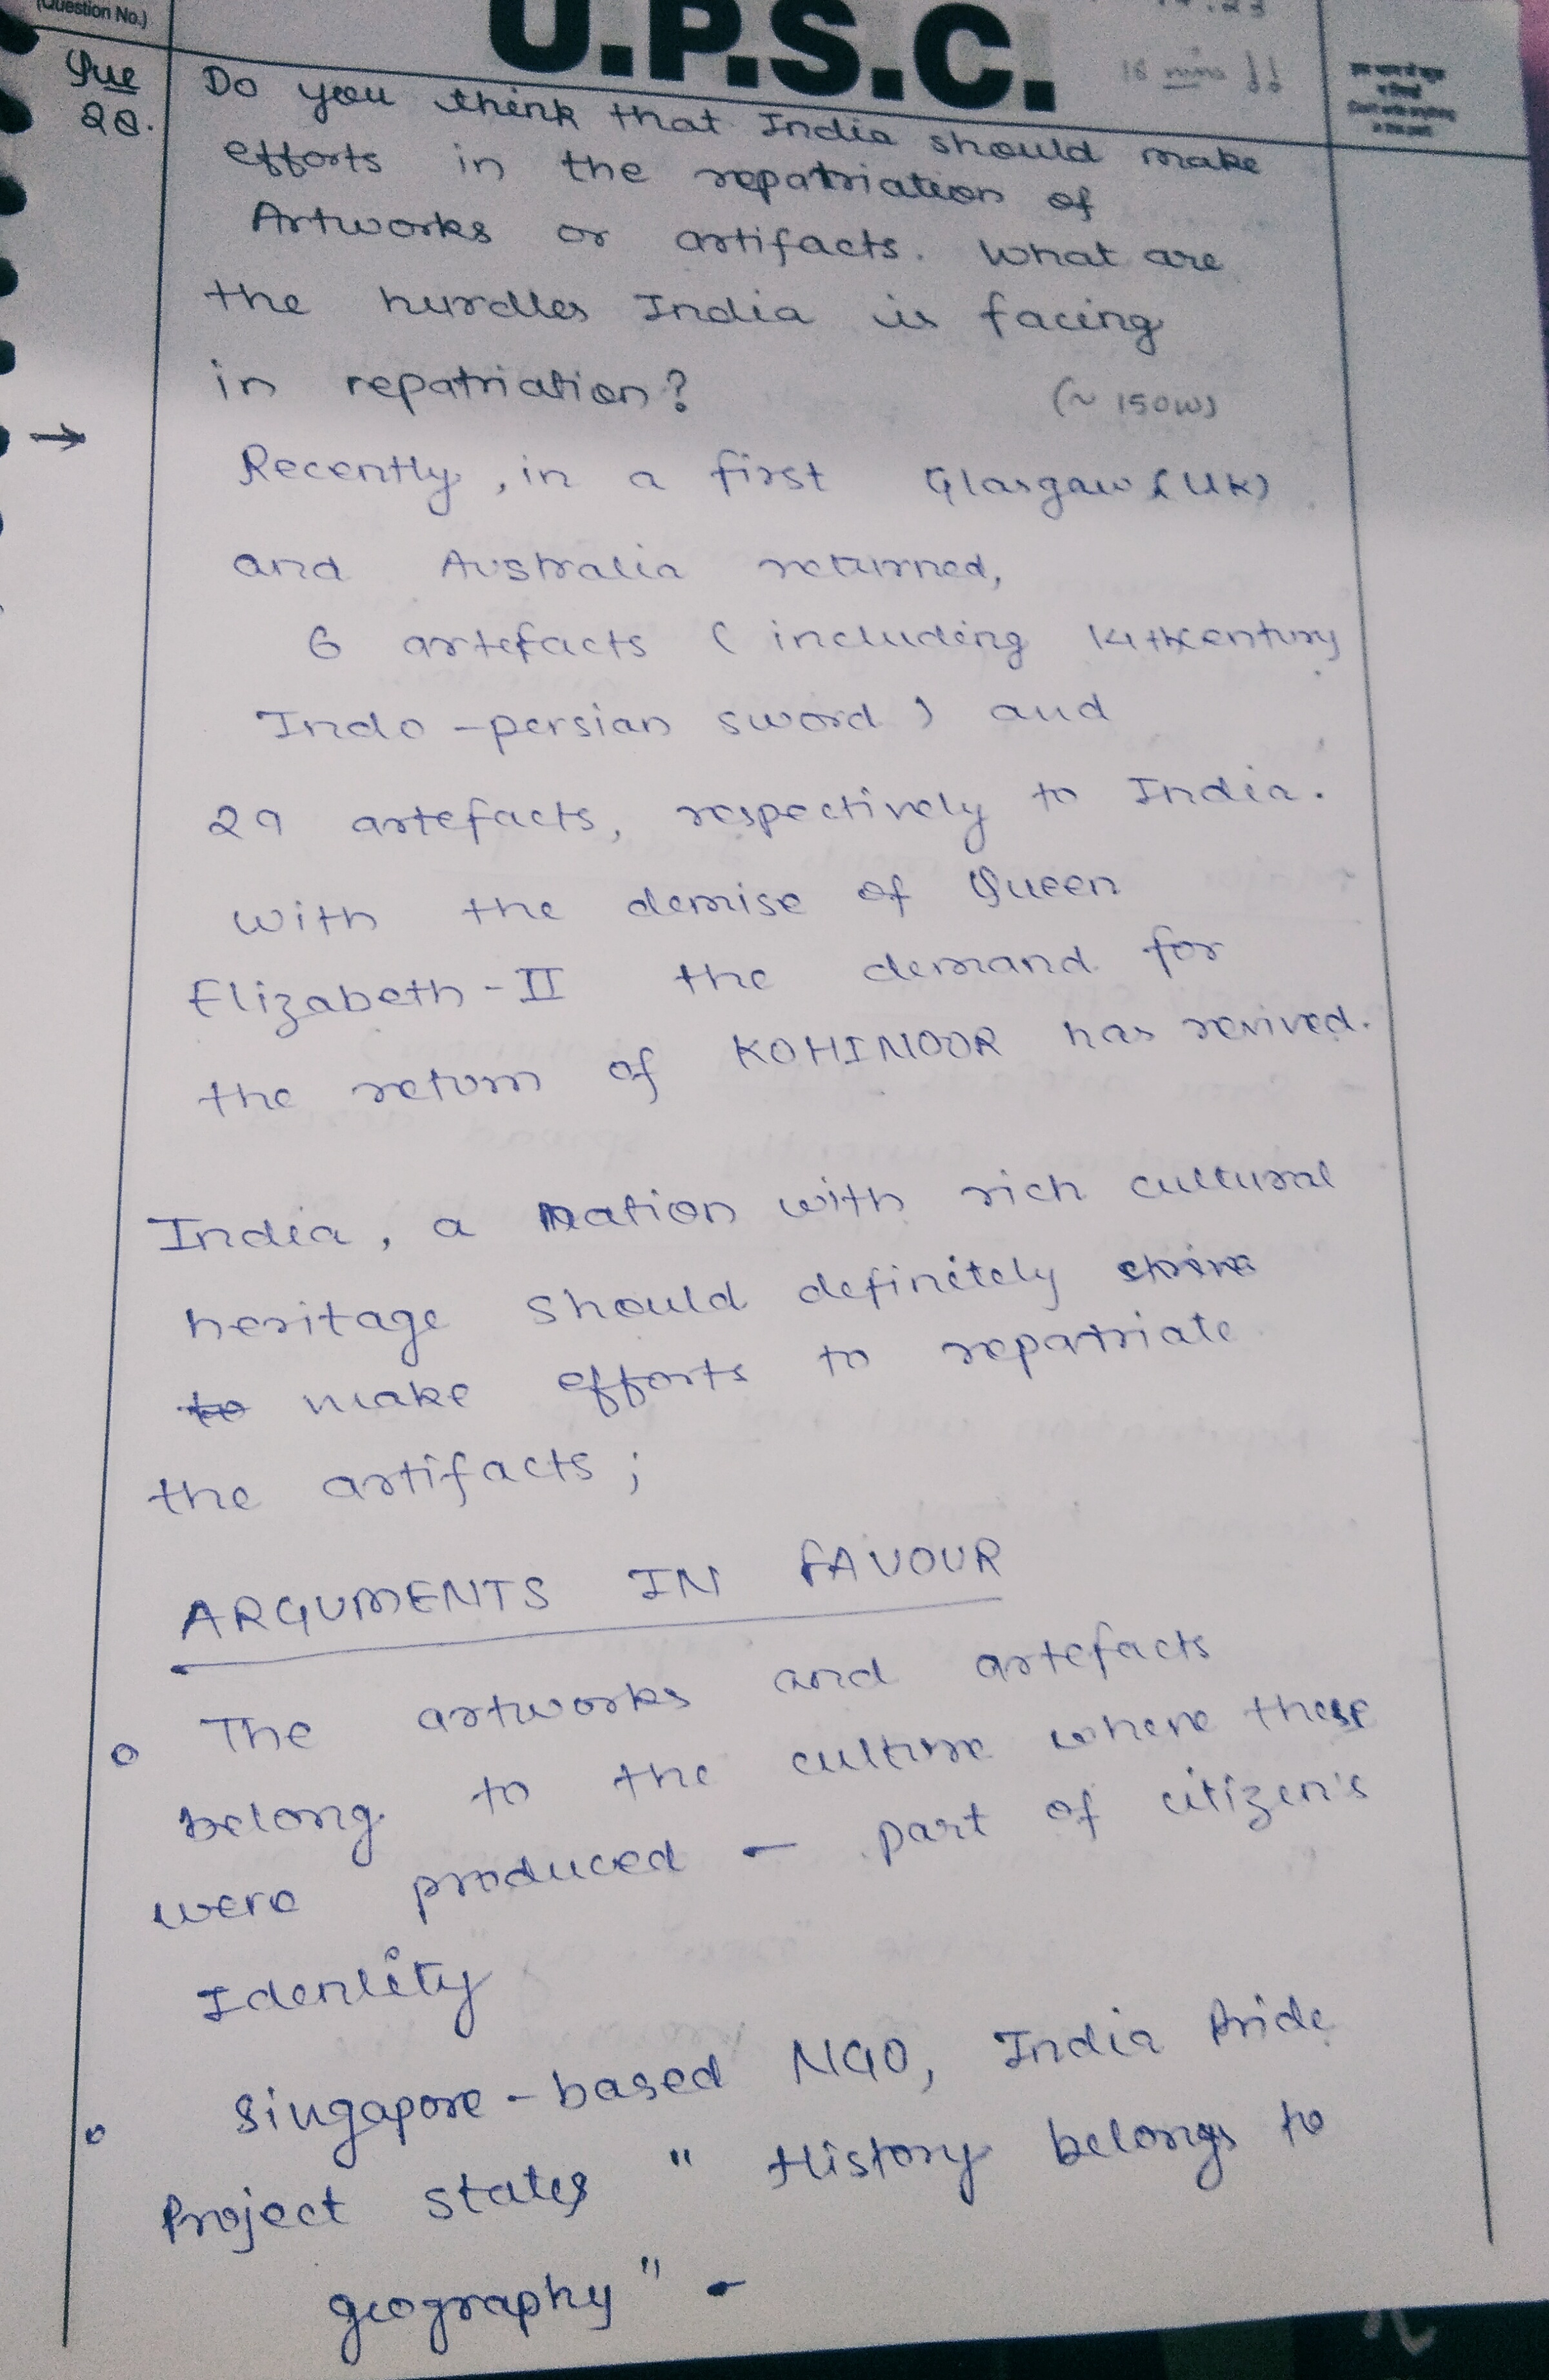 (Question No.)
U.P.S.C.
18 mins !!
(Don't write anything
in this part)
Que
20.
Do you think that India should make
efforts in the repatriation of
Artworks or artifacts. What are
the hurdles India is facing
in repatriation?
(~ 150W)
→
Recently, in a first Glasgaw (UK)
and Australia returned,
6 artefacts (including 14th century
Indo-persian sword) and
29 artefacts, respectively to India.
With the demise of Queen
Elizabeth-II the demand for
the return of KOHINOOR has revived.
India, a nation with rich cultural
heritage should definitely
to make efforts to repatriate
the artifacts;
ARGUMENTS IN FAVOUR
The artworks and artefacts
belong to the culture where these
were produced - part of citizen's
Identity
Singapore-based NGO, India Pride
Project states " History belongs to
geography" -